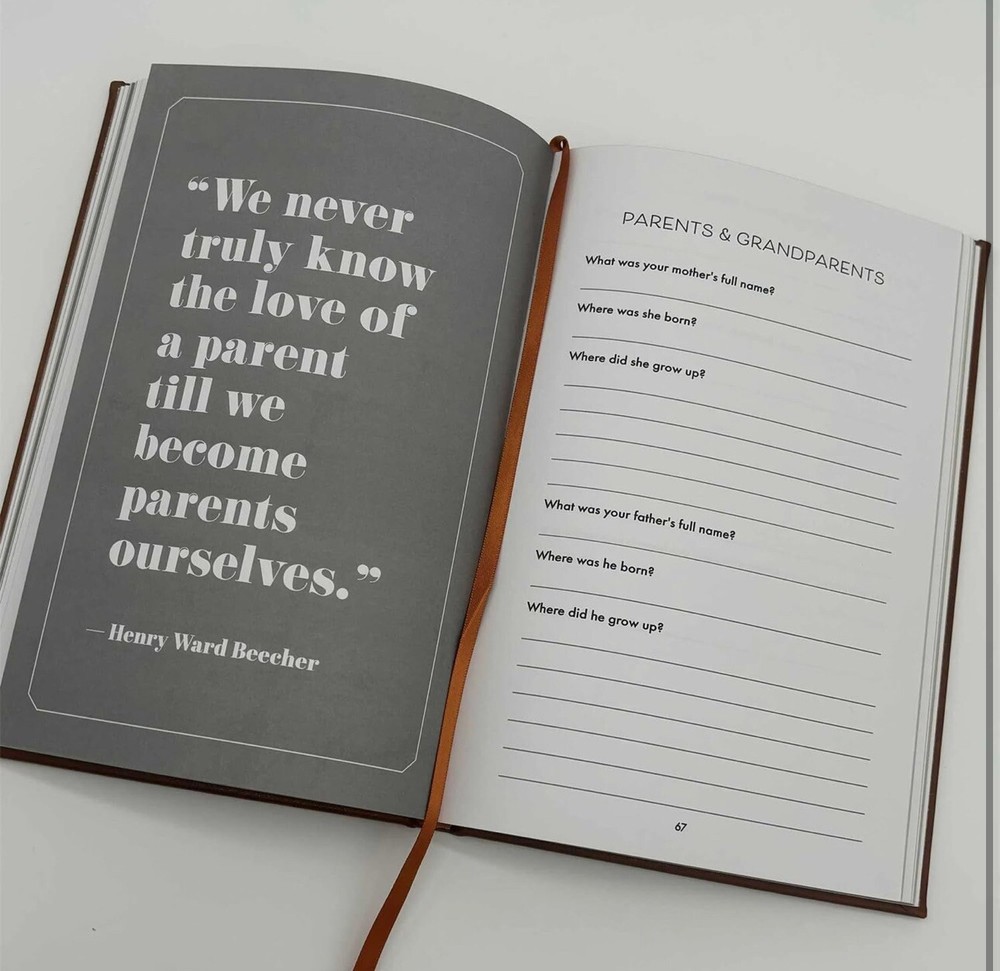 “We never
truly know
the love of
a parent
till we
become
parents
ourselves.”
—Henry Ward Beecher
PARENTS & GRANDPARENTS
What was your mother's full name?
Where was she born?
Where did she grow up?
What was your father's full name?
Where was he born?
Where did he grow up?
67